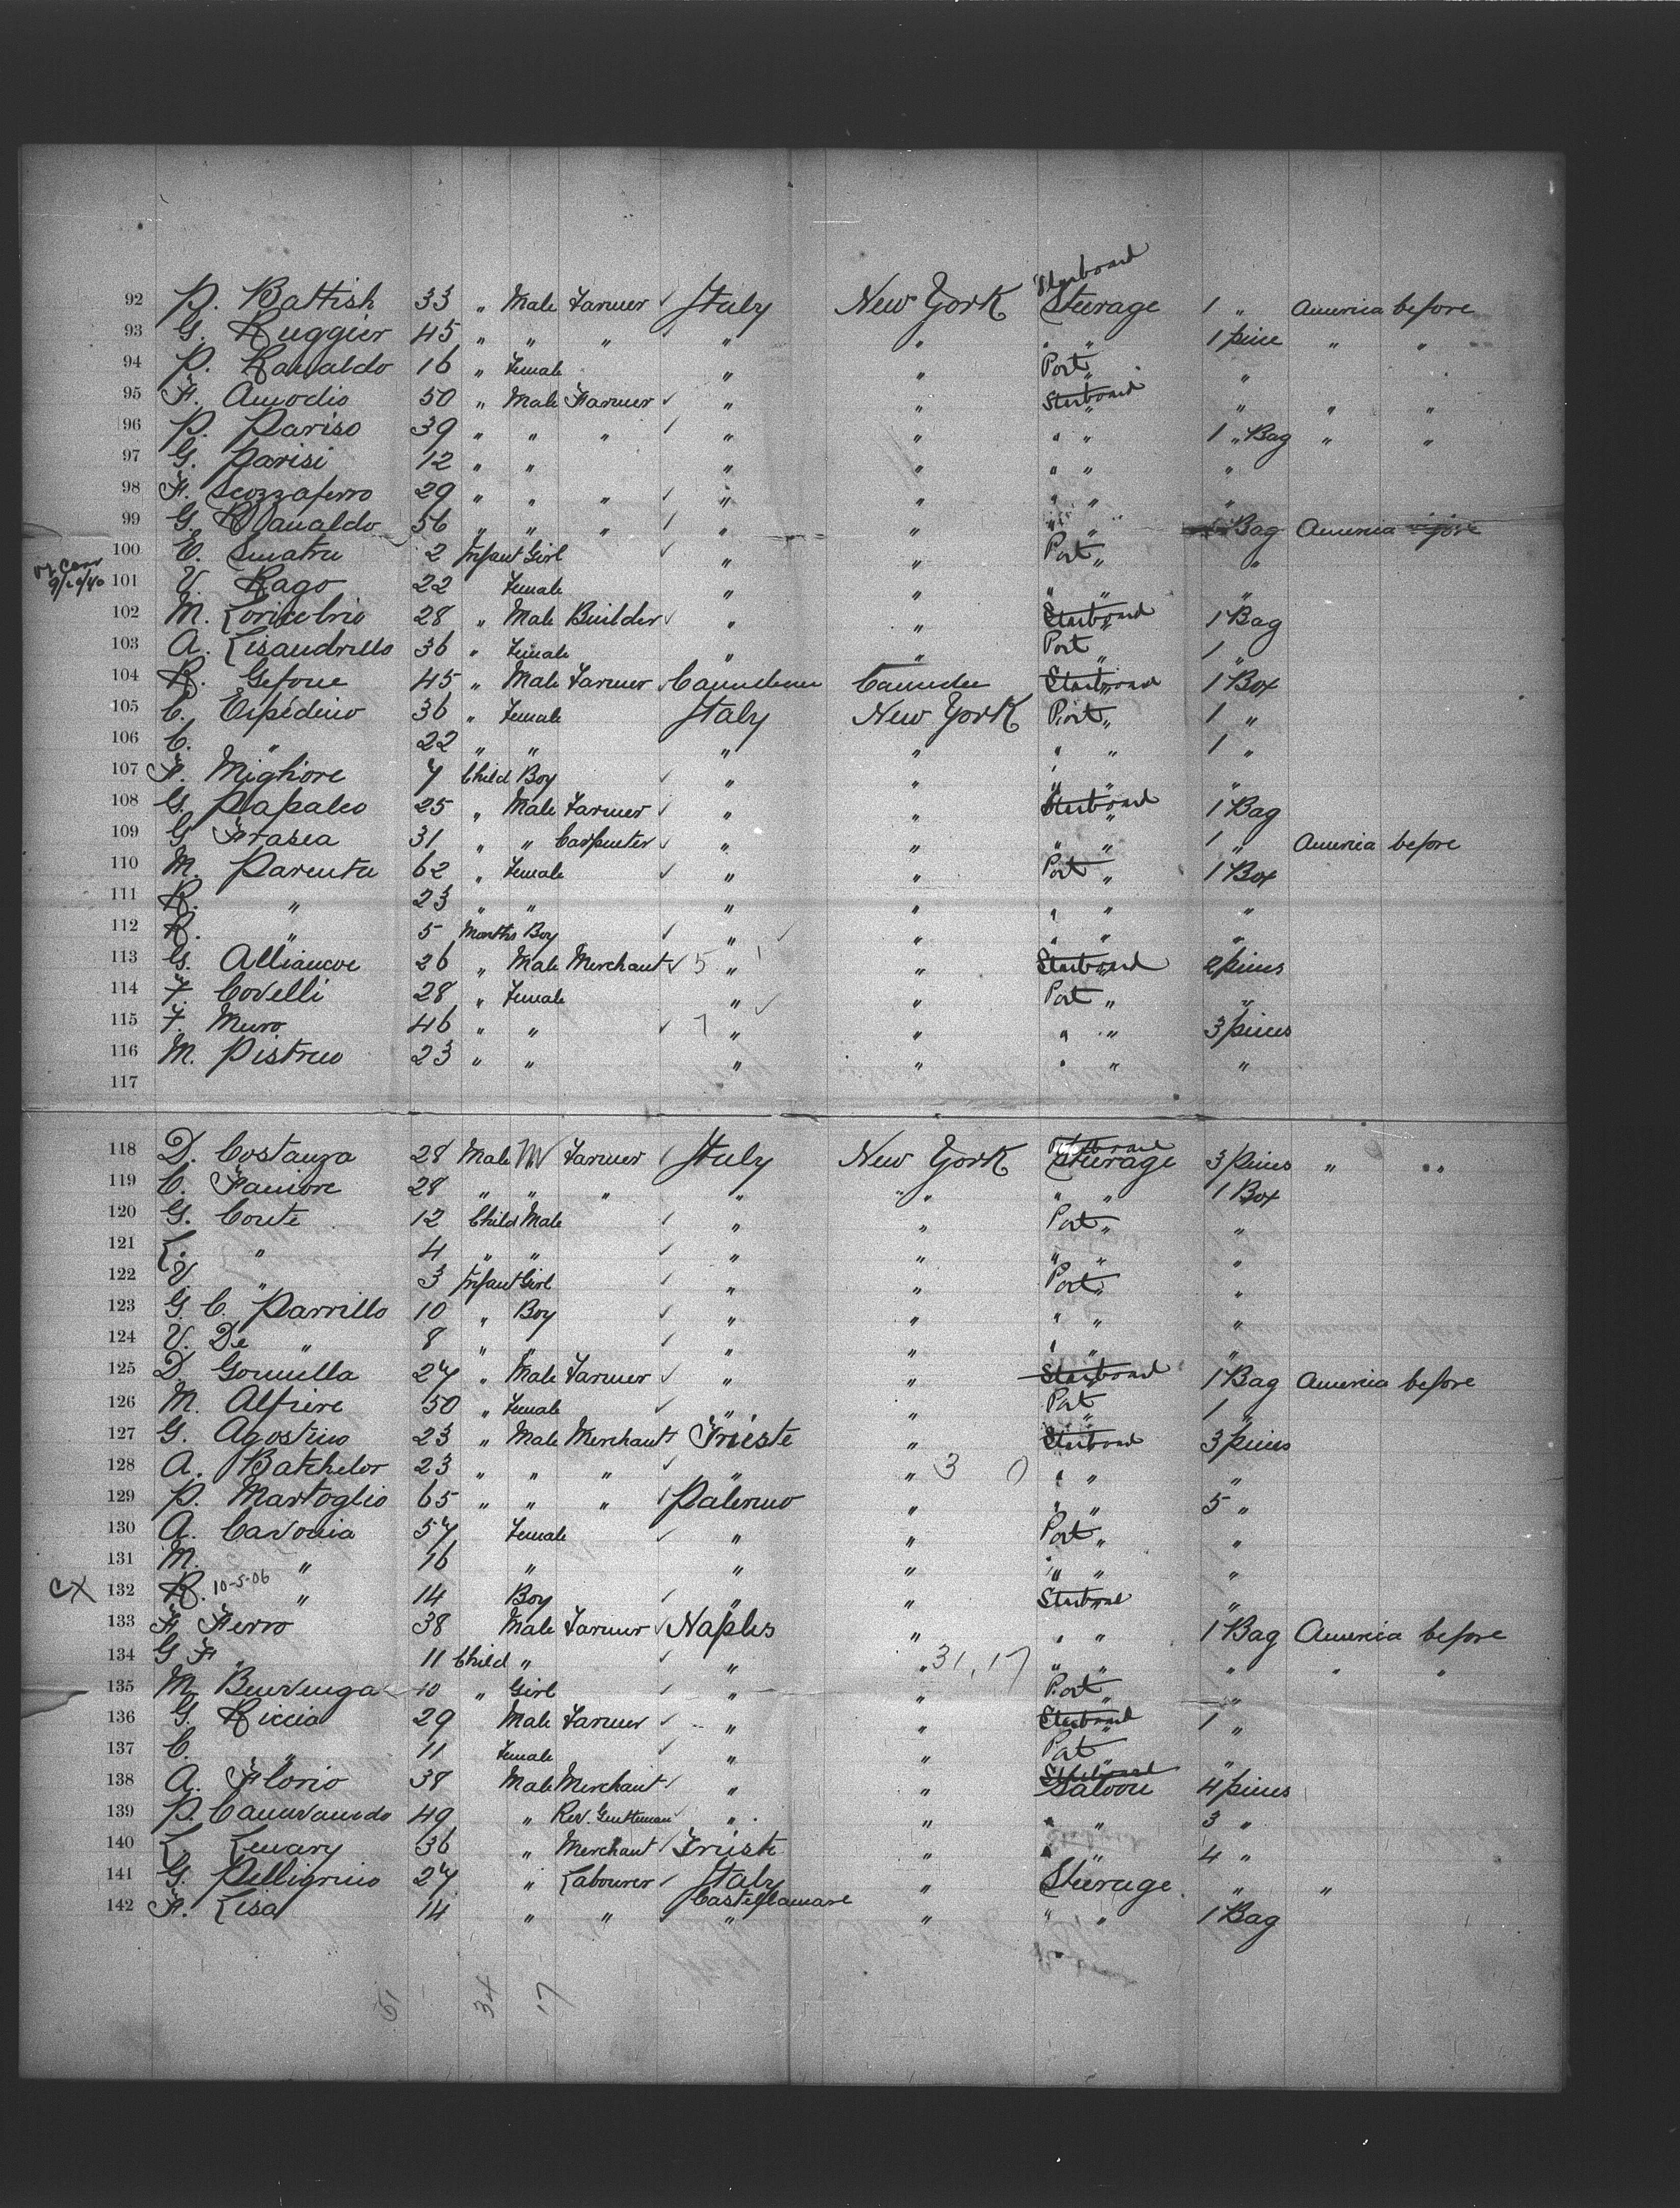 Starboard
92 P. Battish 33 " Male Farmer ✓ Italy New York Sturage 1 " America before
93 G. Ruggier 45 " " " ✓ " " " " 1 piece " "
94 P. Ranaldo 16 " Female " " Port " "
95 F. Amodio 50 " Male Farmer ✓ " " Starboard " " " "
96 P. Pariso 39 " " " ✓ " " " " 1 " Bag " "
97 G. Parisi 12 " " " " " " "
98 F. Scozzaferro 29 " " " ✓ " " " " "
99 G. Ranaldo 56 " " " ✓ " " " " Bag America before
100 E. Sinatra 2 Infant Girl ✓ " " Port " "
9/20/40 101 V. Rago 22 Female " " " "
102 M. 28 " Male Builder ✓ " " Starboard 1 Bag
103 A. Lisandrello 36 " Female " " Port " 1 "
104 R. Gefone 45 " Male Farmer ✓ Starboard 1 Box
105 C. Espedino 36 " Female Italy New York Port " 1 "
106 C. " 22 " " " " " " 1 "
107 F. Migliore 7 Child Boy ✓ " " " " "
108 G. Papaleo 25 " Male Farmer ✓ " " Starboard " 1 Bag
109 G Frasea 31 " " Carpenter ✓ " " " " 1 " America before
110 M. Parenta 62 " Female ✓ " " Port " 1 Box
111 R. " 23 " " " " " " "
112 R. " 5 Months Boy ✓ " ✓ " " " "
113 G. 26 " Male Merchant ✓ 5 " " Starboard 2 pieces
114 F. Covelli 28 " Female " ✓ " Port " "
115 F. Muro 46 " " ✓ 7 " " " " 3 pieces
116 M. Pistreo 23 " " " " " " "
117
118 D. Costanza 28 Male M Farmer ✓ Italy New York Starboard Sturage 3 pieces " "
119 C. Famore 28 " " " " " " " " 1 Box
120 G. Conte 12 Child Male ✓ " " Port " "
121 L. " 4 " " ✓ " " " " "
122 V. " 3 Infant Girl ✓ " " Port " "
123 G. C. Parrillo 10 " Boy ✓ " " " " "
124 V. De " 8 " " ✓ " " " " "
125 D. Gomella 27 " Male Farmer ✓ " " Starboard 1 Bag America before
126 M. Alfiere 50 " Female ✓ " " Port " 1 "
127 G. Agostino 23 " Male Merchant ✓ Trieste " Starboard 3 pieces
128 A. Batchelor 23 " " " ✓ " " 3 0 " " "
129 P. Martoglio 65 " " " ✓ Palermo " " " 5 "
130 A. Cavonia 57 Female ✓ " " Port " "
131 M. " 16 " " " " " "
CX 132 R. 10-5-06 " 14 Boy ✓ " " Starboard "
133 F. Ferro 38 Male Farmer ✓ Naples " " " 1 Bag America before
134 G F " 11 Child " ✓ " " 31, 17 " " " " "
135 M. Benvenga 10 " Girl ✓ " " Port " "
136 G. Riccia 29 Male Farmer ✓ " " Starboard " 1 "
137 C. " 11 Female ✓ " " Port " "
138 A. Florio 38 Male Merchant ✓ " " Starboard Saloon 4 pieces
139 P. 49 " Rev. Gentleman ✓ " " " " 3 "
140 L. Lenary 36 " Merchant ✓ Trieste " " " 4 "
141 G. Pelligrino 27 " Labourer ✓ Italy " Sturage " "
142 F. Lisa 14 " " Castellamare " " " " 1 Bag
51 34 17